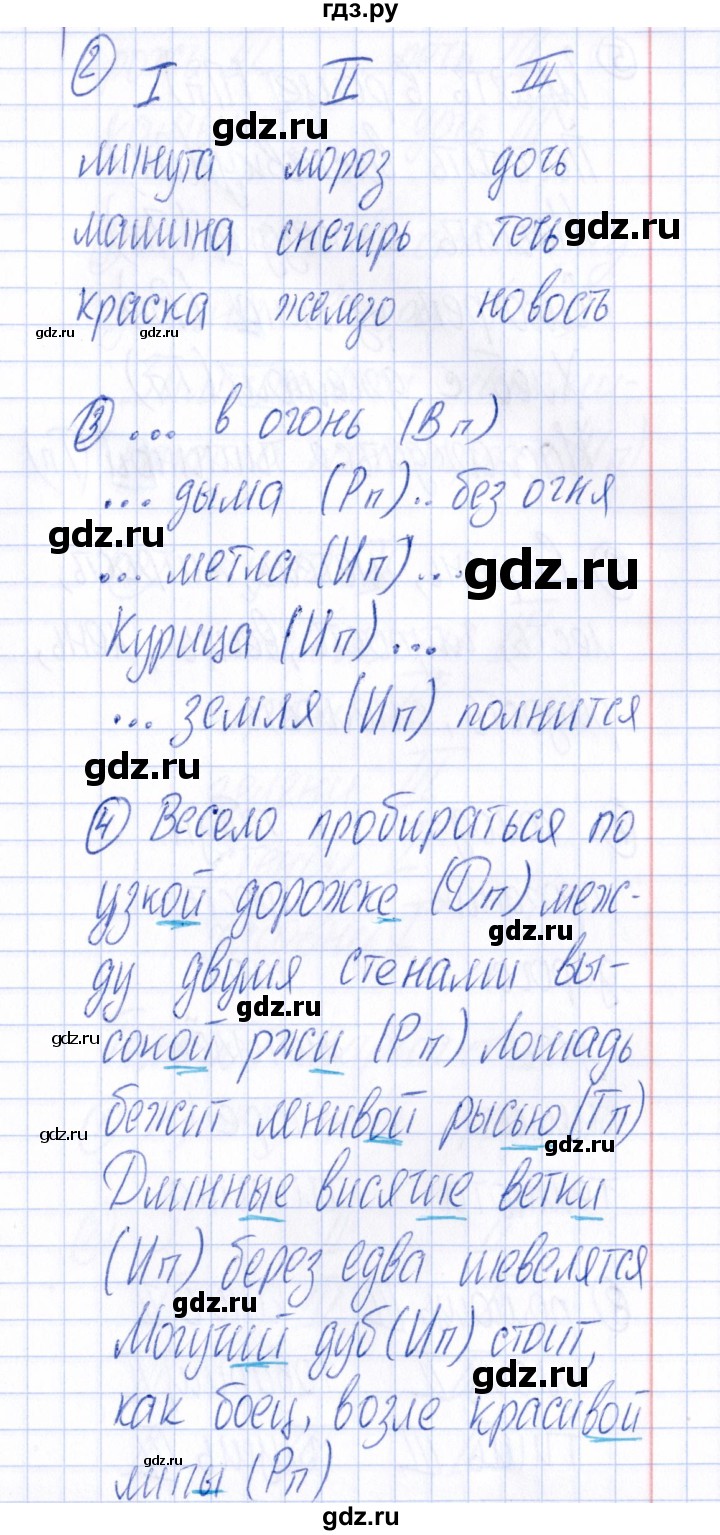 гдз.ру
2 I II III
gdz.ru
минута мороз дочь
машина снегирь течь
gdz.ru
краска железо новость
gdz.ru gdz.ru
3 ... в огонь (Вп)
... дыма (Рп).. без огня
gdz.ru
... метла (Ип)...
gdz.ru
Курица (Ип)...
... земля (Ип) полнится
gdz.ru
4 Весело пробираться по
узкой дорожке (Дп) меж-
gdz.ru
ду двумя стенами вы-
gdz.ru
сокой ржи (Рп) Лошадь
gdz.ru
бежит ленивой рысью (Тп)
gdz.ru
gdz.ru
Длинные висячие ветки
(Ип) берез едва шевелятся
gdz.ru
Могучий дуб (Ип) стоит,
gdz.ru
как боец, возле красивой
gdz.ru
липы (Рп)
gdz.ru